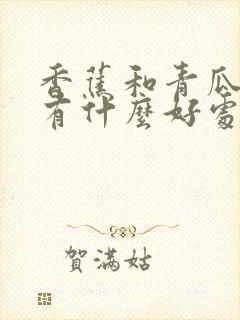 香蕉和青瓜
有什麼好處
賀滿姑